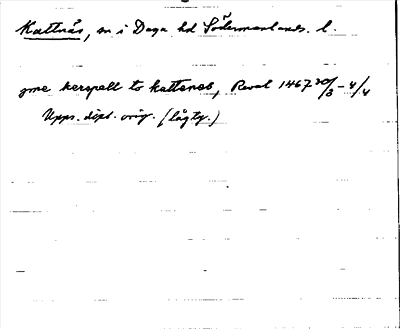 Kattnäs, sn i Daga hd Södermanlands l.
yme kerspell to kattenes, Reval 1467 20/3 - 4/4
Upps. dipl. orig. (lågty.)